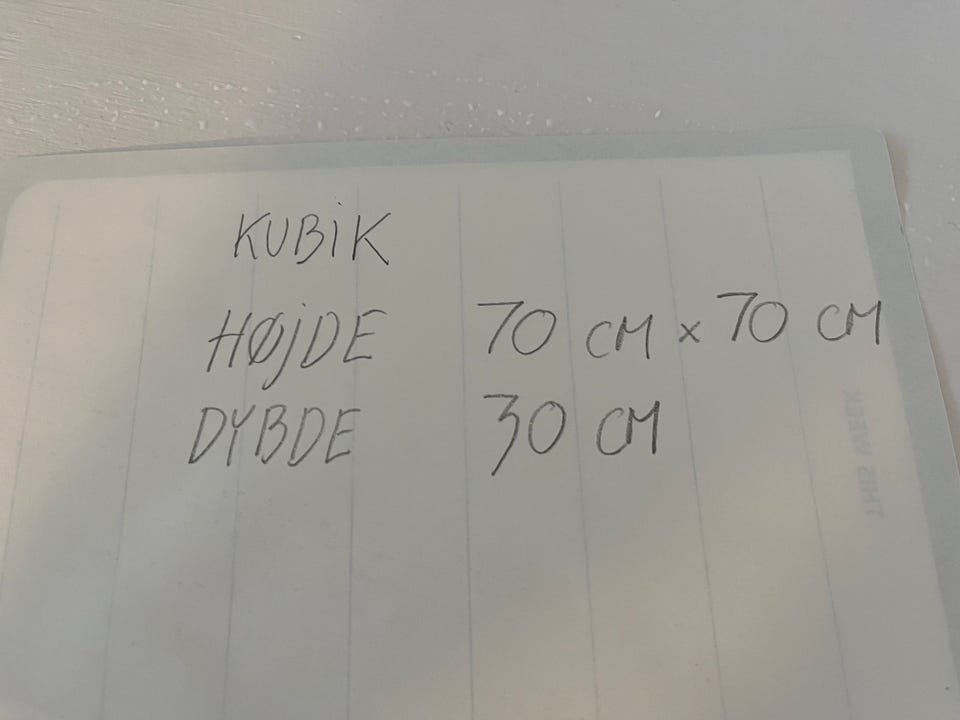 KUBiK
HØjDE 70 CM x 70 CM
DYBDE 30 CM
THIS WEEK